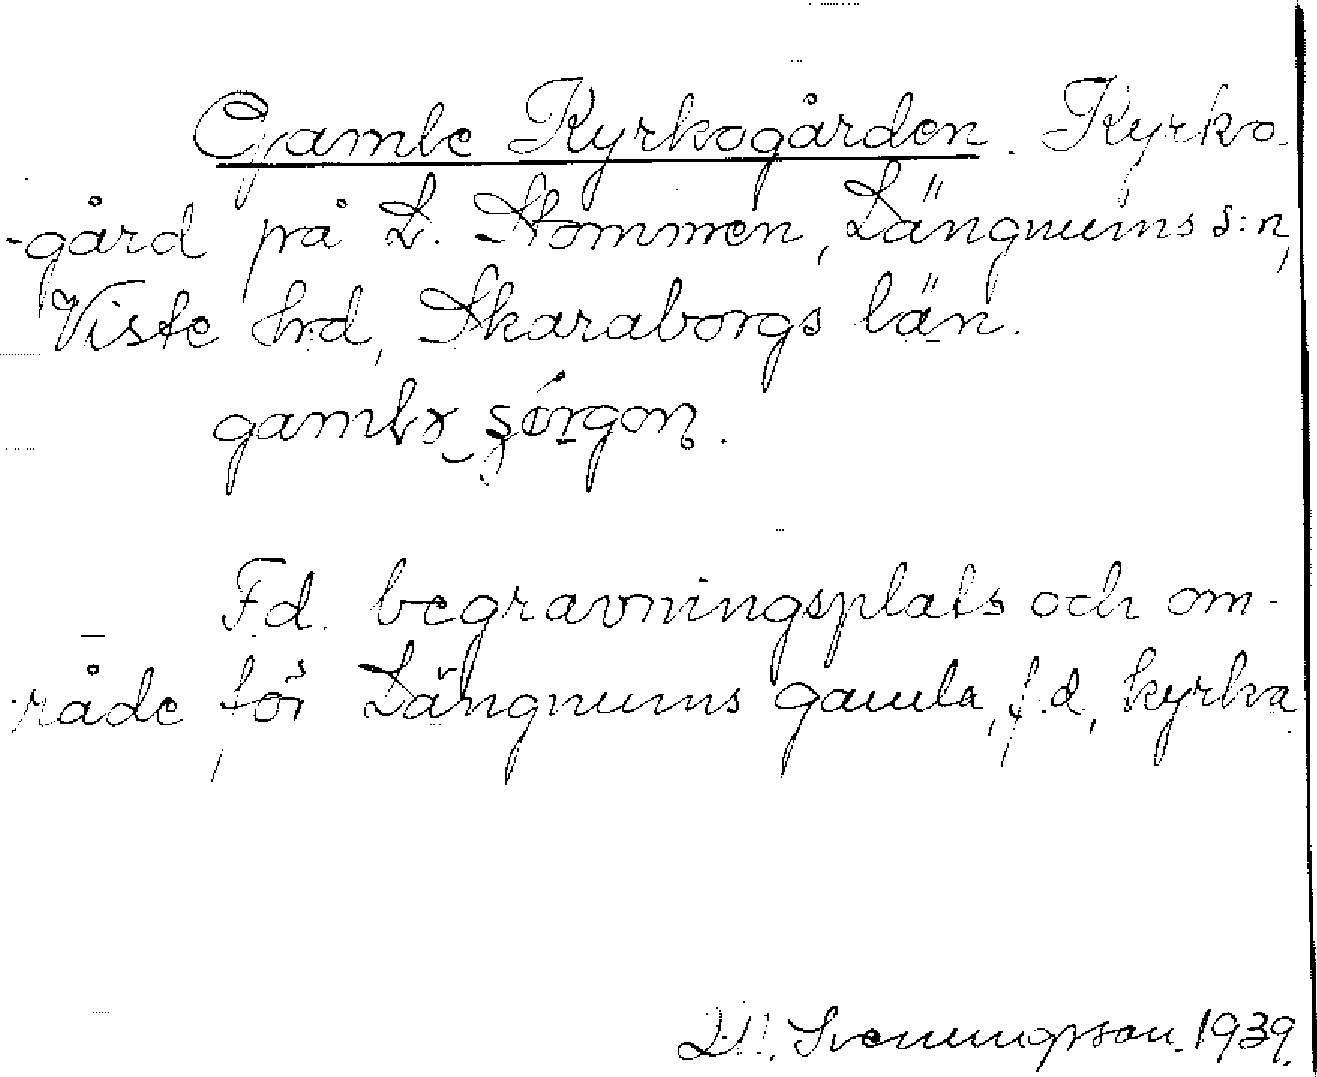 Gamle Kyrkogården. Kyrko-
-gård på L. Stommen, Längnums s:n,
Viste hrd, Skaraborgs län.
F.d. begravningsplats och om-
råde för Längnums gamla, f.d, kyrka.
Svenungsson. 1939.